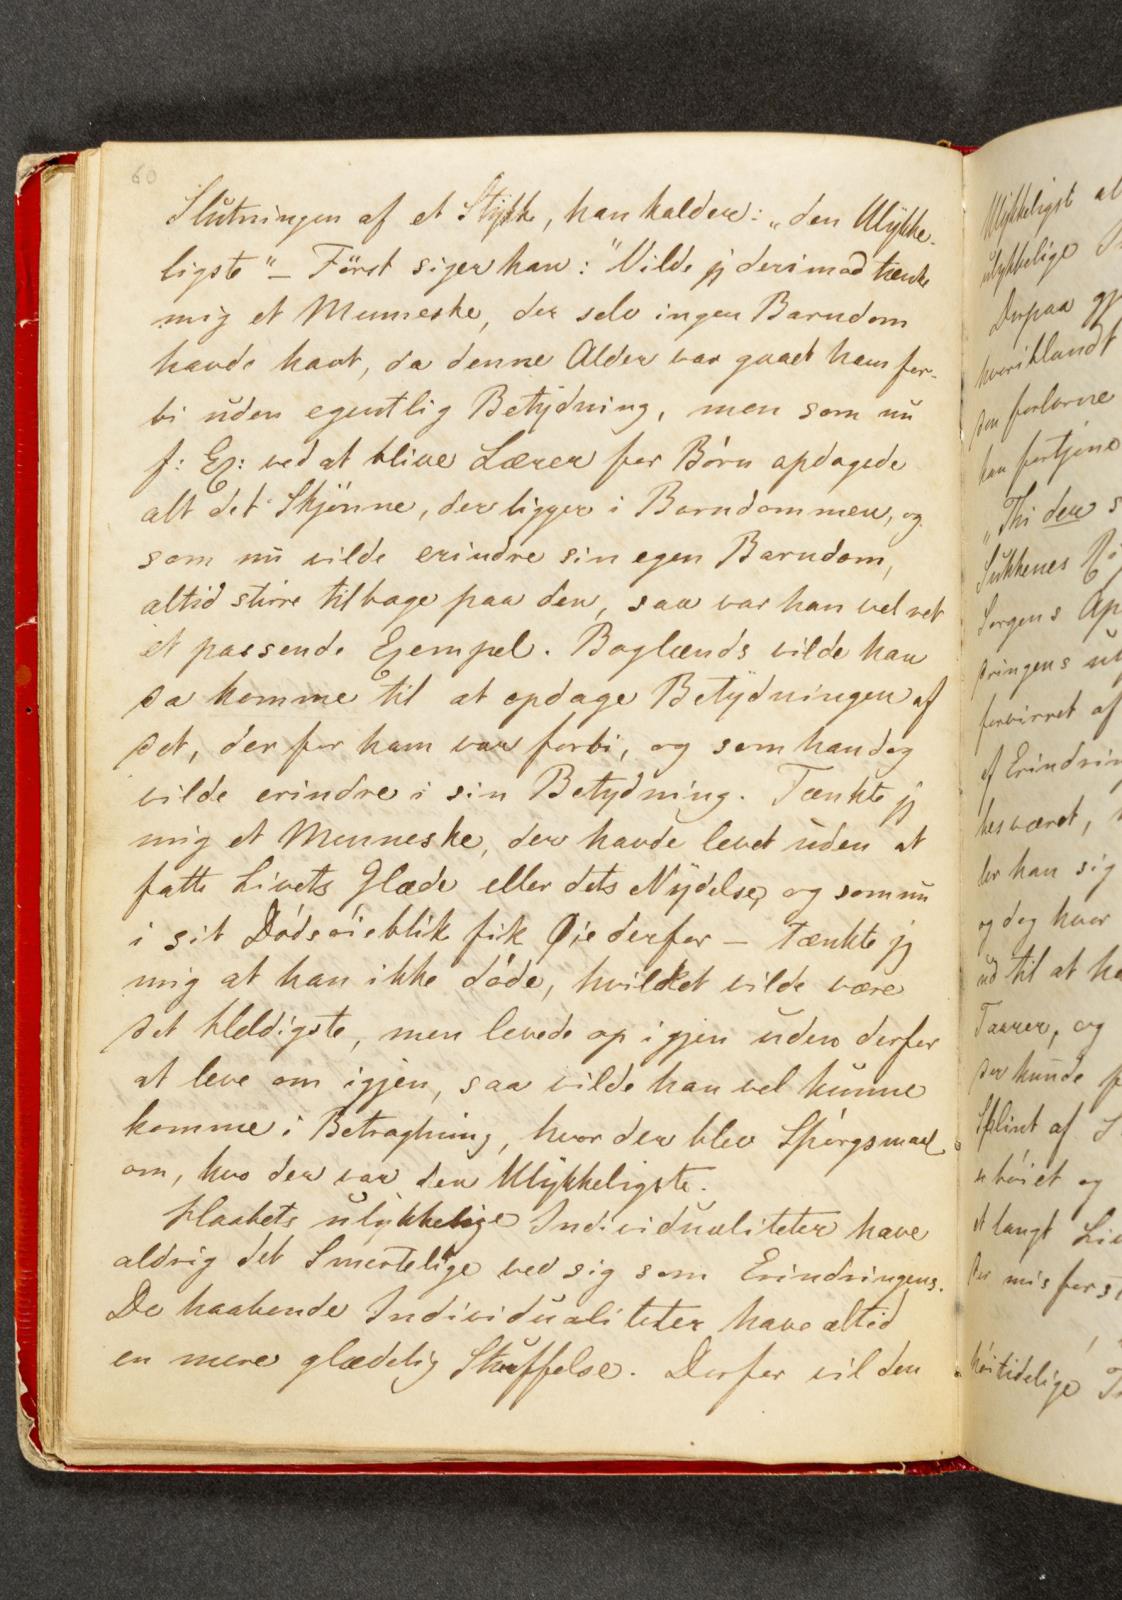 60
Slutningen af et Stykke, han kalder: „den Ulykke-
ligste" – Først siger han: "Vilde jg derimod tænke
mig et Menneske, der selv ingen Barndom
havde havt, da denne Alder var gaaet ham for-
bi uden egentlig Betydning, men som nu
f: Ex: ved at blive Lærer for Børn opdagede
alt det Skjønne, der ligger i Barndommen, og
som nu vilde erindre sin egen Barndom,
altid stirre tilbage paa den, saa var han vel et
et passende Exempel. Baglænds vilde han
da komme til at opdage Betydningen af
det, der for ham var forbi, og som han dog
vilde erindre i sin Betydning. Tænkte jg
mig et Menneske, der havde levet uden at
fatte Livets Glæde eller dets Nydelse, og som nu
i sit Dødsøieblik fik Øie derfor – tænkte jg
mig at han ikke døde, hvilket vilde være
det heldigste, men levede op igjen uden derfor
at leve om igjen, saa vilde han vel kunne
komme i Betragtning, hvor der blev Spørgsmaal
om, hvo der var den Ulykkeligste.
Haabets ulykkelige Individualiteter have
aldrig det Smertelige ved sig som Erindringens.
De haabende Individualiteter have altid
en mere glædelig Skuffelse. Derfor vil den
Ulykkeligst al
ulykkelige
Derpaa gj
hvoriblandt
den forlorne
han fortjene
„Thi den s
Sukkenes Rø
Sorgens Ap
dringens
forvirret af
af Erindrin
besværet,
der han sig
og dog hvor
ud til at ha
Taarer, og
der kunde
Splint af S
et langt Li
der misfors
høitidelige T